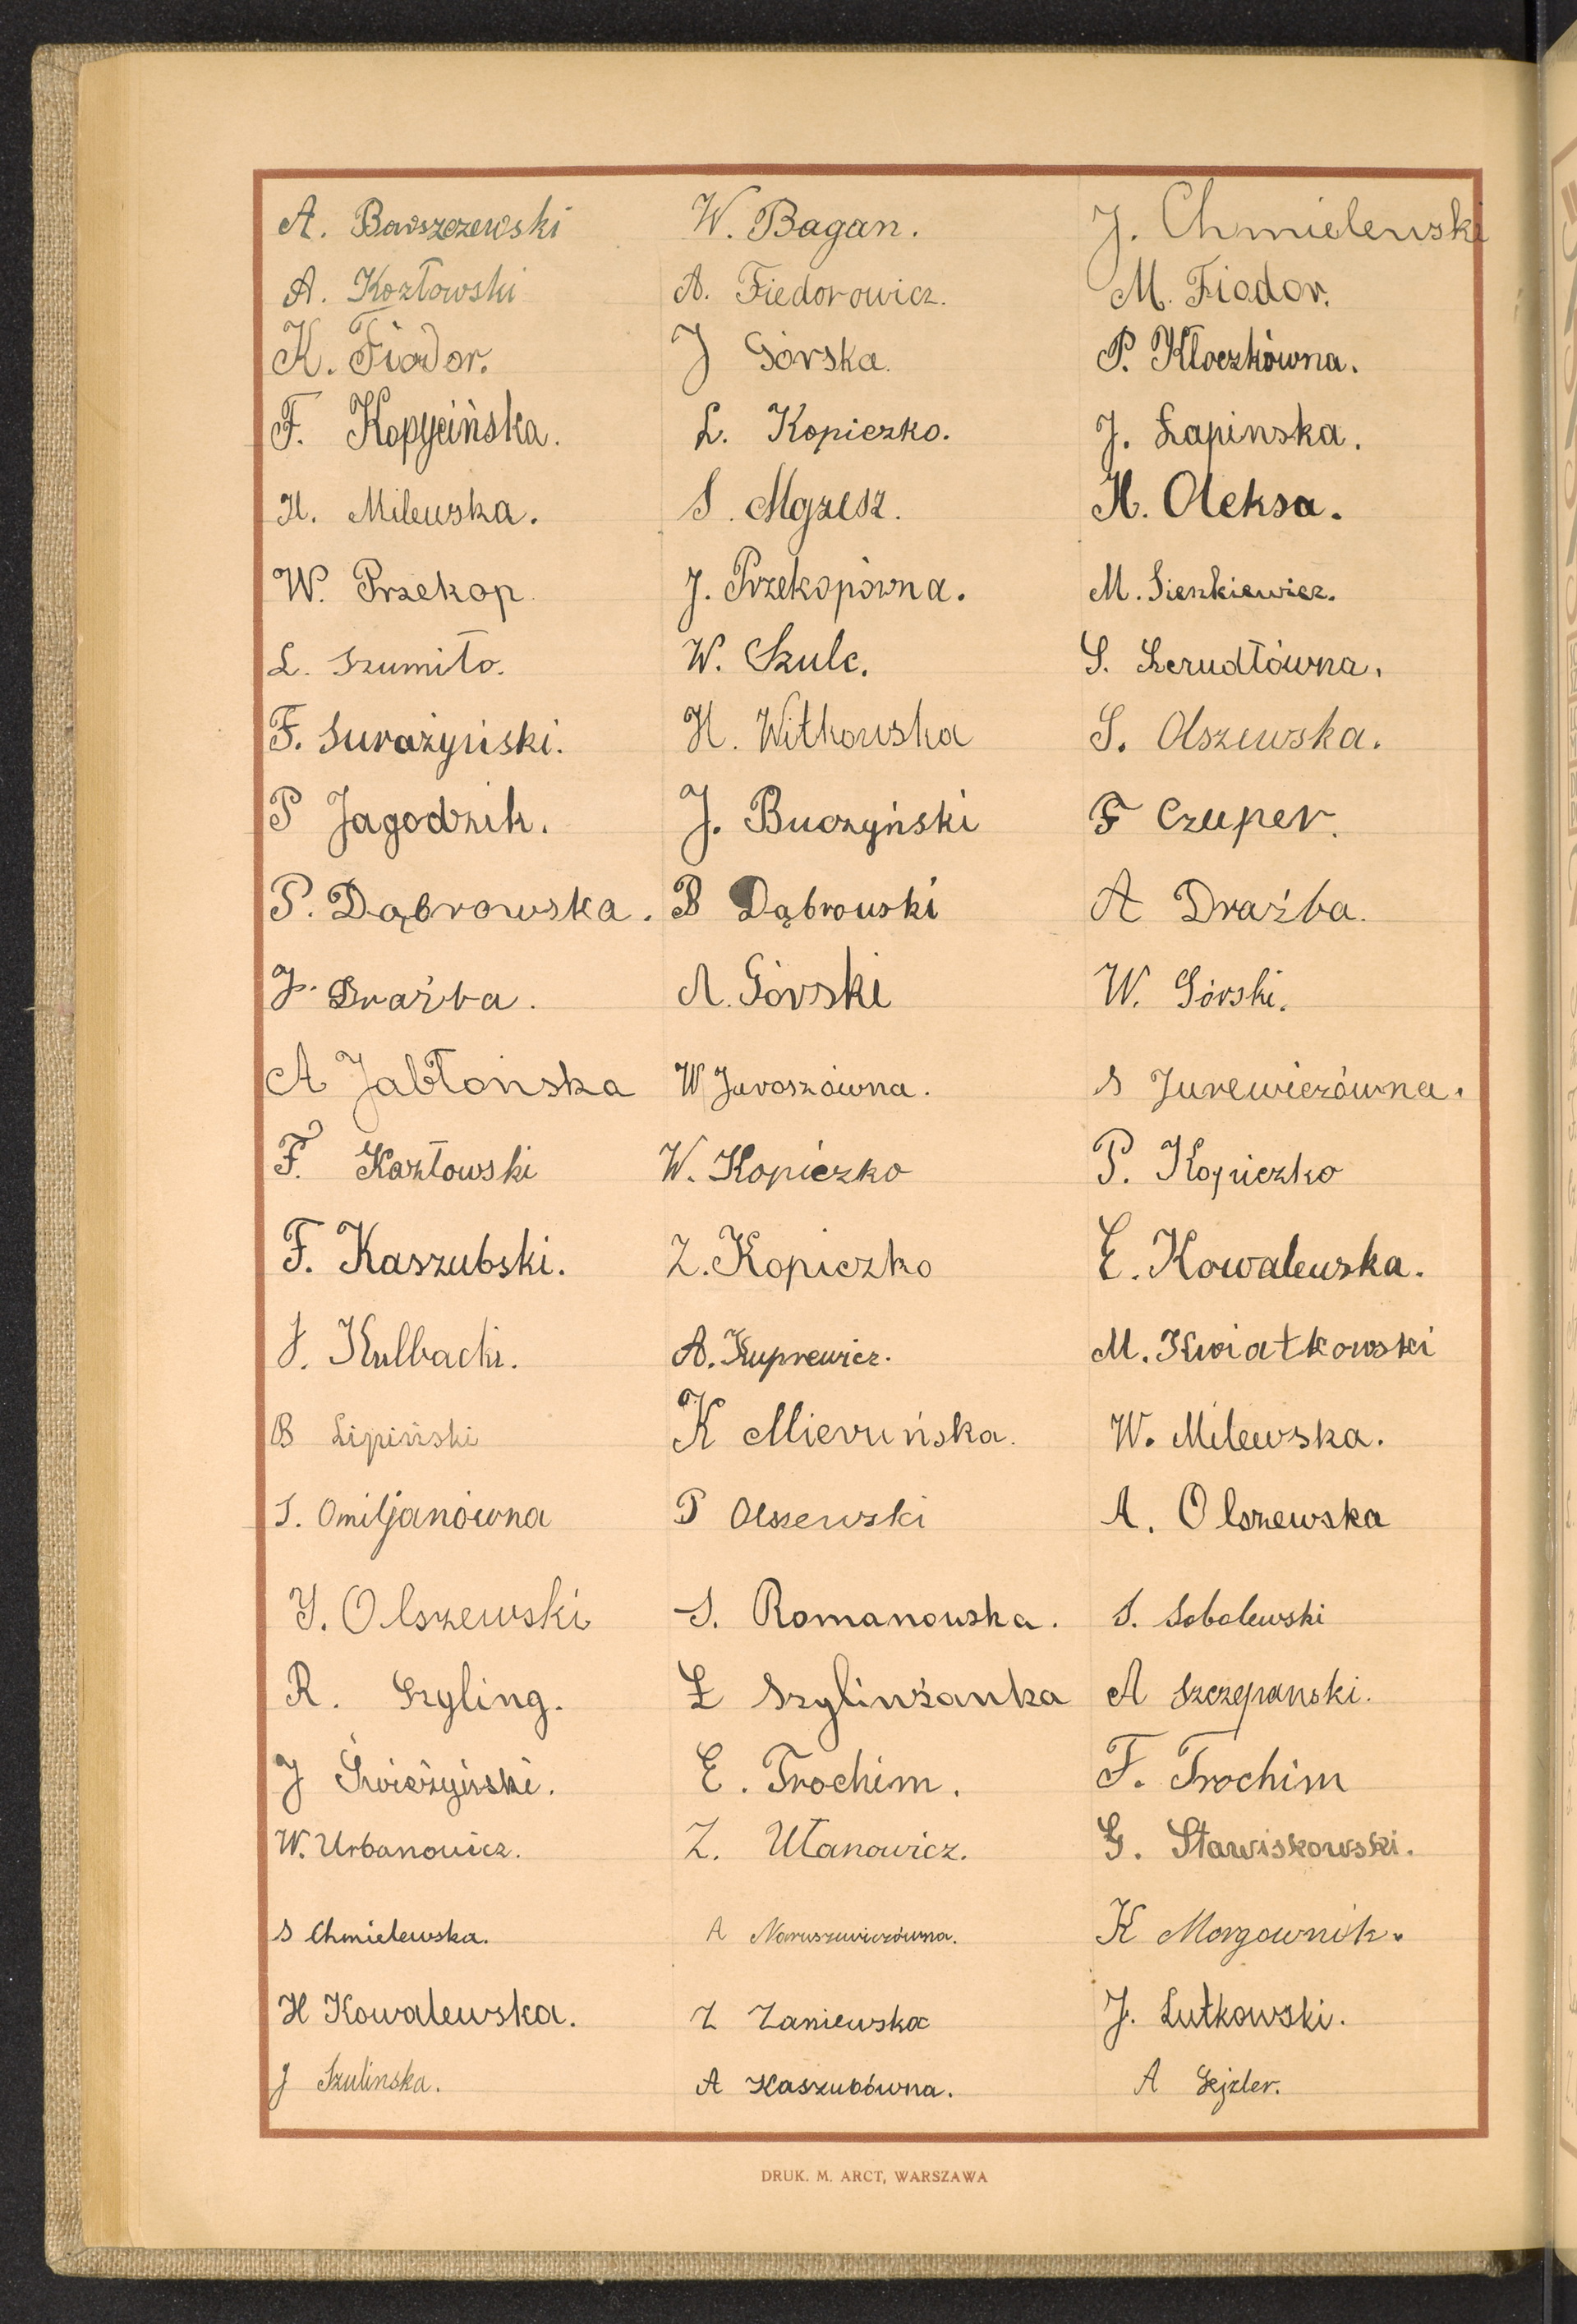 A. Barszczewski W. Bagan. J. Chmielewski
A. Kozłowski A. Fiedorowicz. M. Fiodor.
K. Fiodor. J Górska. P. Kloczkówna.
F. Kopycińska. L. Kopiczko. J. Łapinska.
H. Milewska. S. Mgzesz. H. Oleksa.
W. Przekop. J. Przekopówna. M. Sienkiewicz.
L. Szumiło. W. Szulc. S. Szrudłówna.
F. Surażyński. H. Witkowska S. Olszewska.
P Jagodzik. J. Buczyński F Czuper.
P. Dąbrowska. B Dąbrowski A Draźba.
J. Draźba. A. Górski W. Górski.
A Jabłońska W Jaroszówna. S Jurewiczówna.
F. Kozłowski W. Kopiczko P. Kopiczko
F. Kaszubski. Z. Kopiczko E. Kowalewska.
J. Kulbacki. A. Kuprewicz. M. Kwiatkowski
B Lipiński K Mieruńska. W. Milewska.
S. Omiljanówna P Olszewski A. Olszewska
J. Olszewski S. Romanowska. S. Sobolewski
R. Szyling. L Szylinżanka A Szczepanski.
J Świeżyński. E. Trochim. F. Trochim
W. Urbanowicz. Z. Ułanowicz. G. Stawiskowski.
S Chmielewska. A Naruszewiczówna. K Morgownik.
H Kowalewska. Z Zaniewska J. Lutkowski.
J Szulinska. A Kaszubówna. A Gejzler.
DRUK. M. ARCT, WARSZAWA